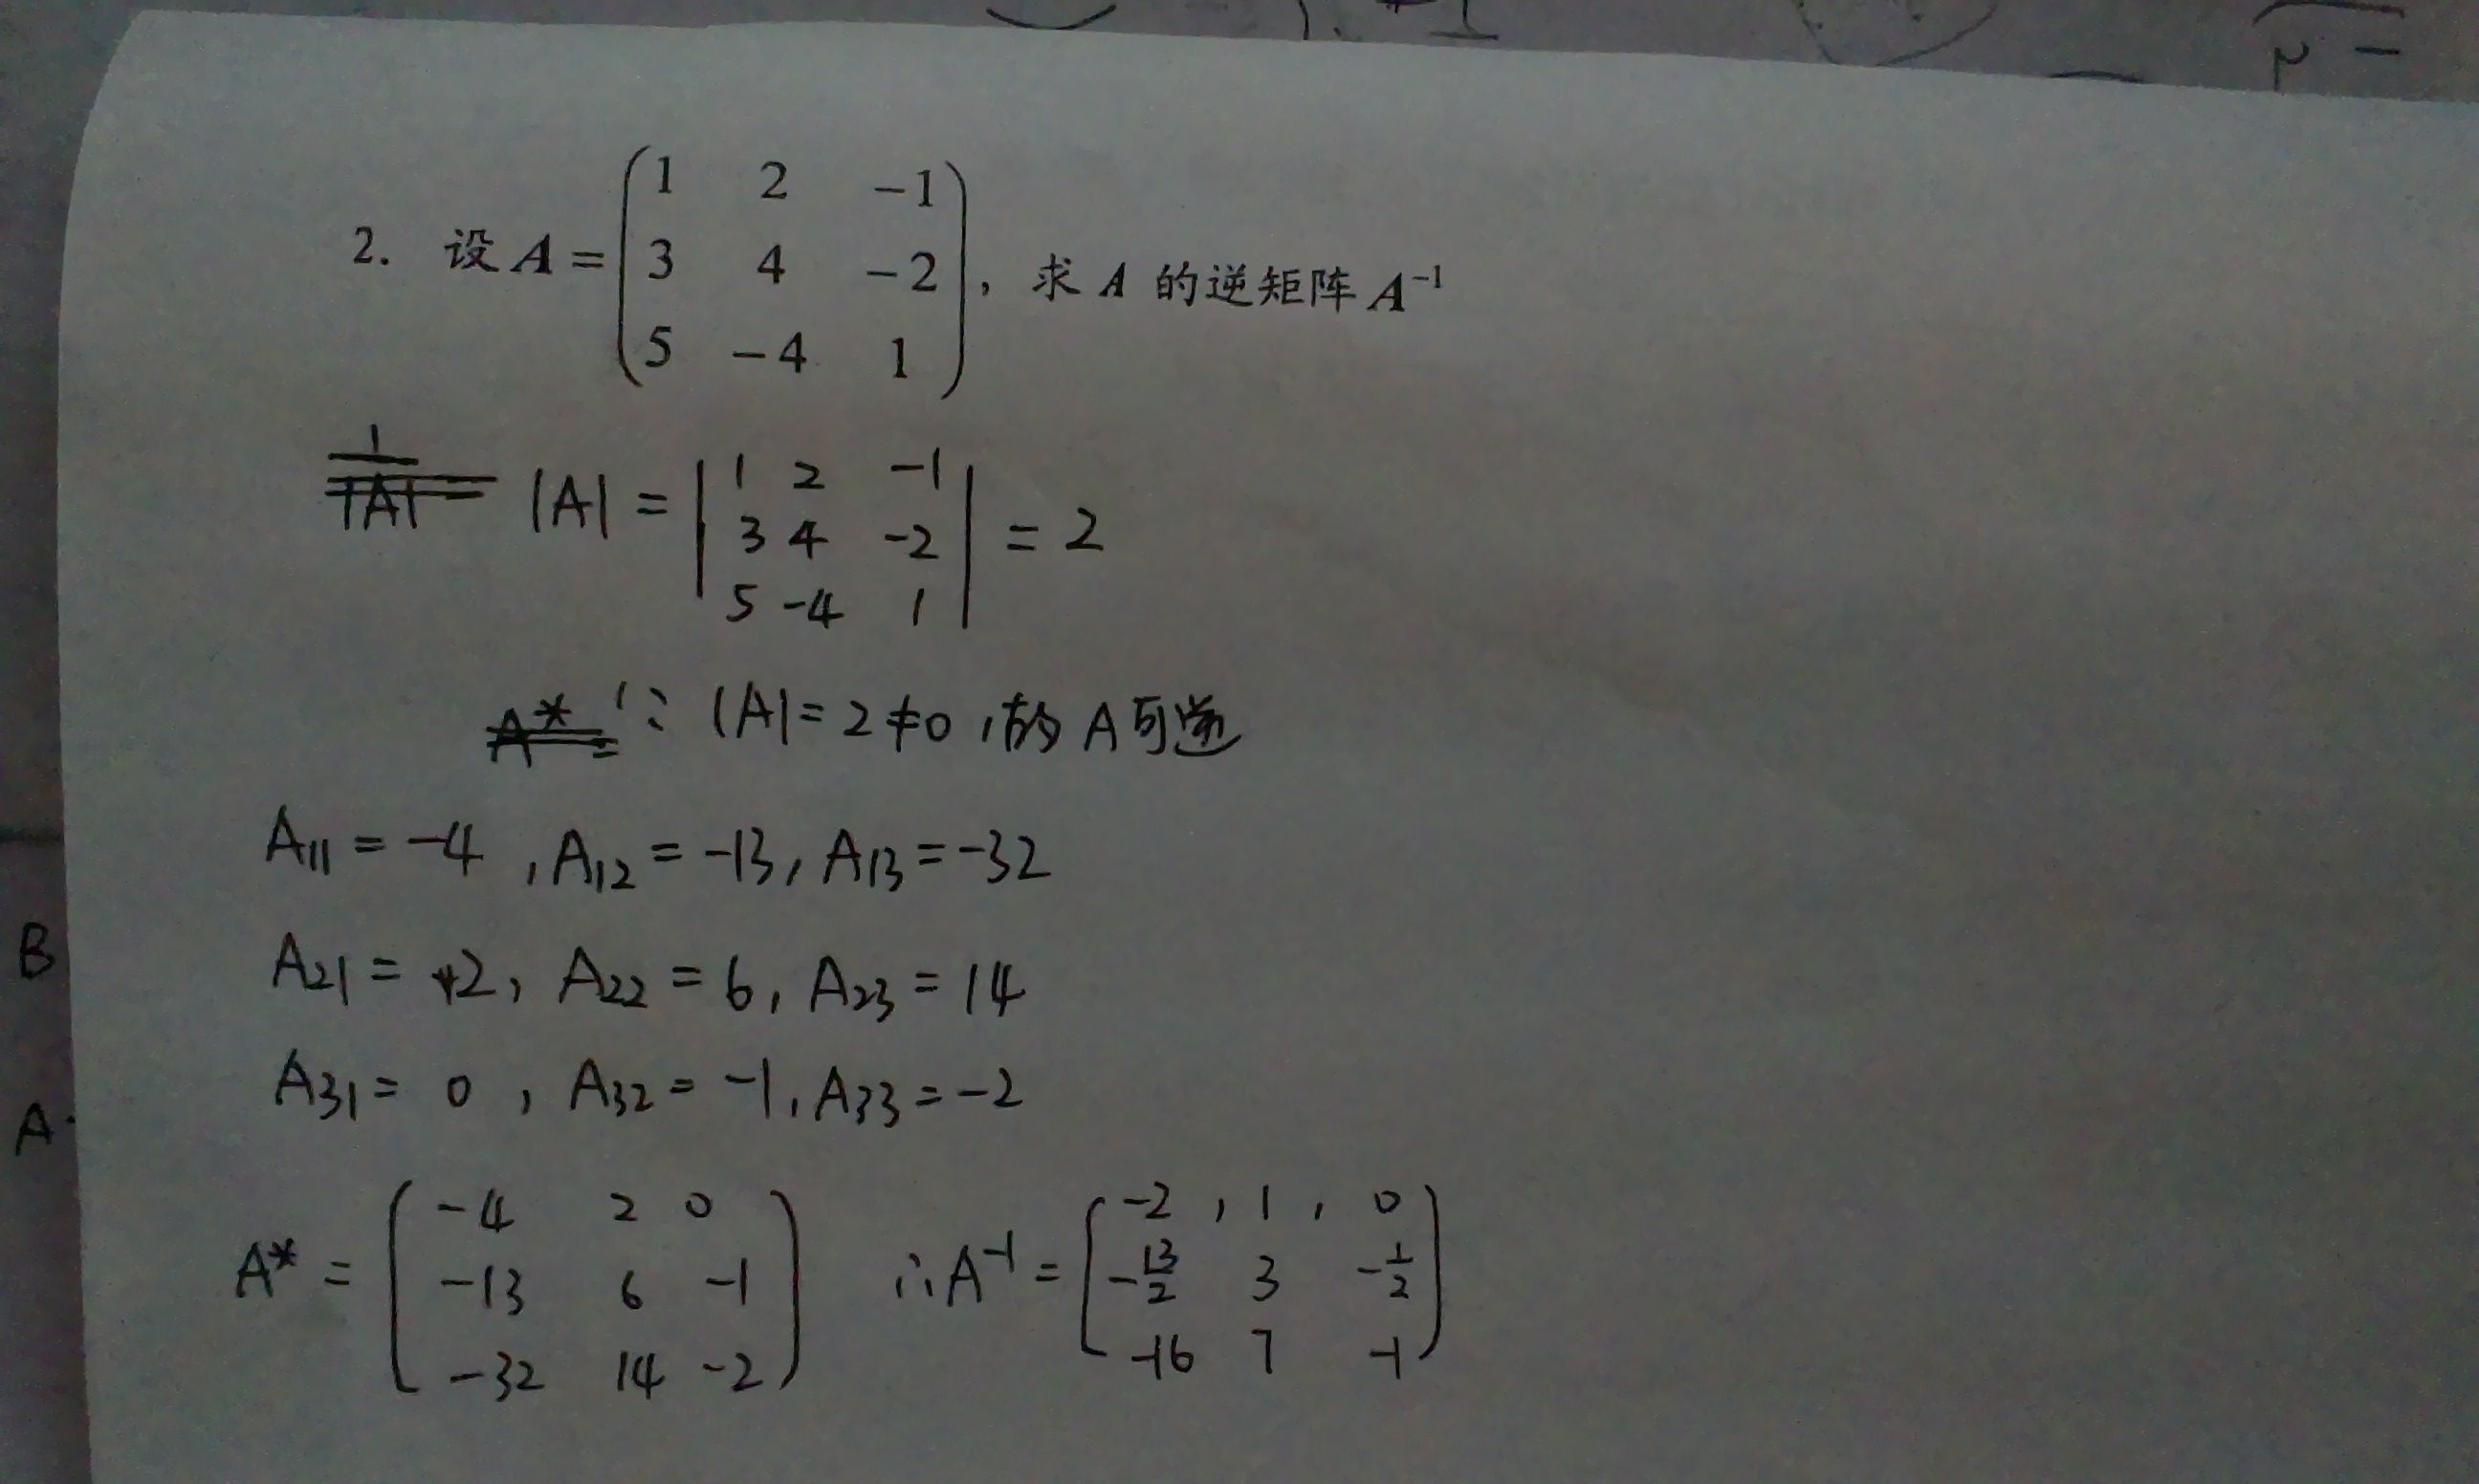 2. 设 A = (1 2 -1
3 4 -2
5 -4 1), 求 A 的逆矩阵 A⁻¹
1
|A| = |A| = | 1 2 -1
3 4 -2
5 -4 1 | = 2
A* = ∵ |A| = 2 ≠ 0, 故 A 可逆
A₁₁ = -4, A₁₂ = -13, A₁₃ = -32
A₂₁ = +2, A₂₂ = 6, A₂₃ = 14
A₃₁ = 0, A₃₂ = -1, A₃₃ = -2
A* = (-4 2 0
-13 6 -1
-32 14 -2) ∴ A⁻¹ = [-2, 1, 0
-13/2 3 -1/2
-16 7 -1]
B
A